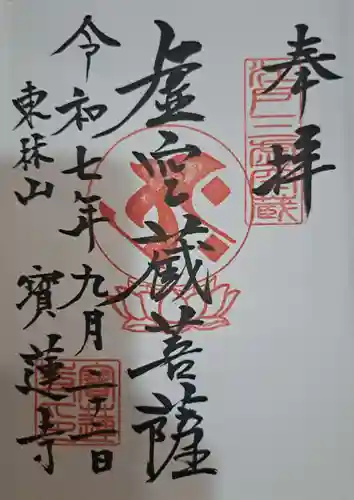 奉拝
虚空蔵菩薩
令和七年九月二十二日
東珠山 寳蓮寺